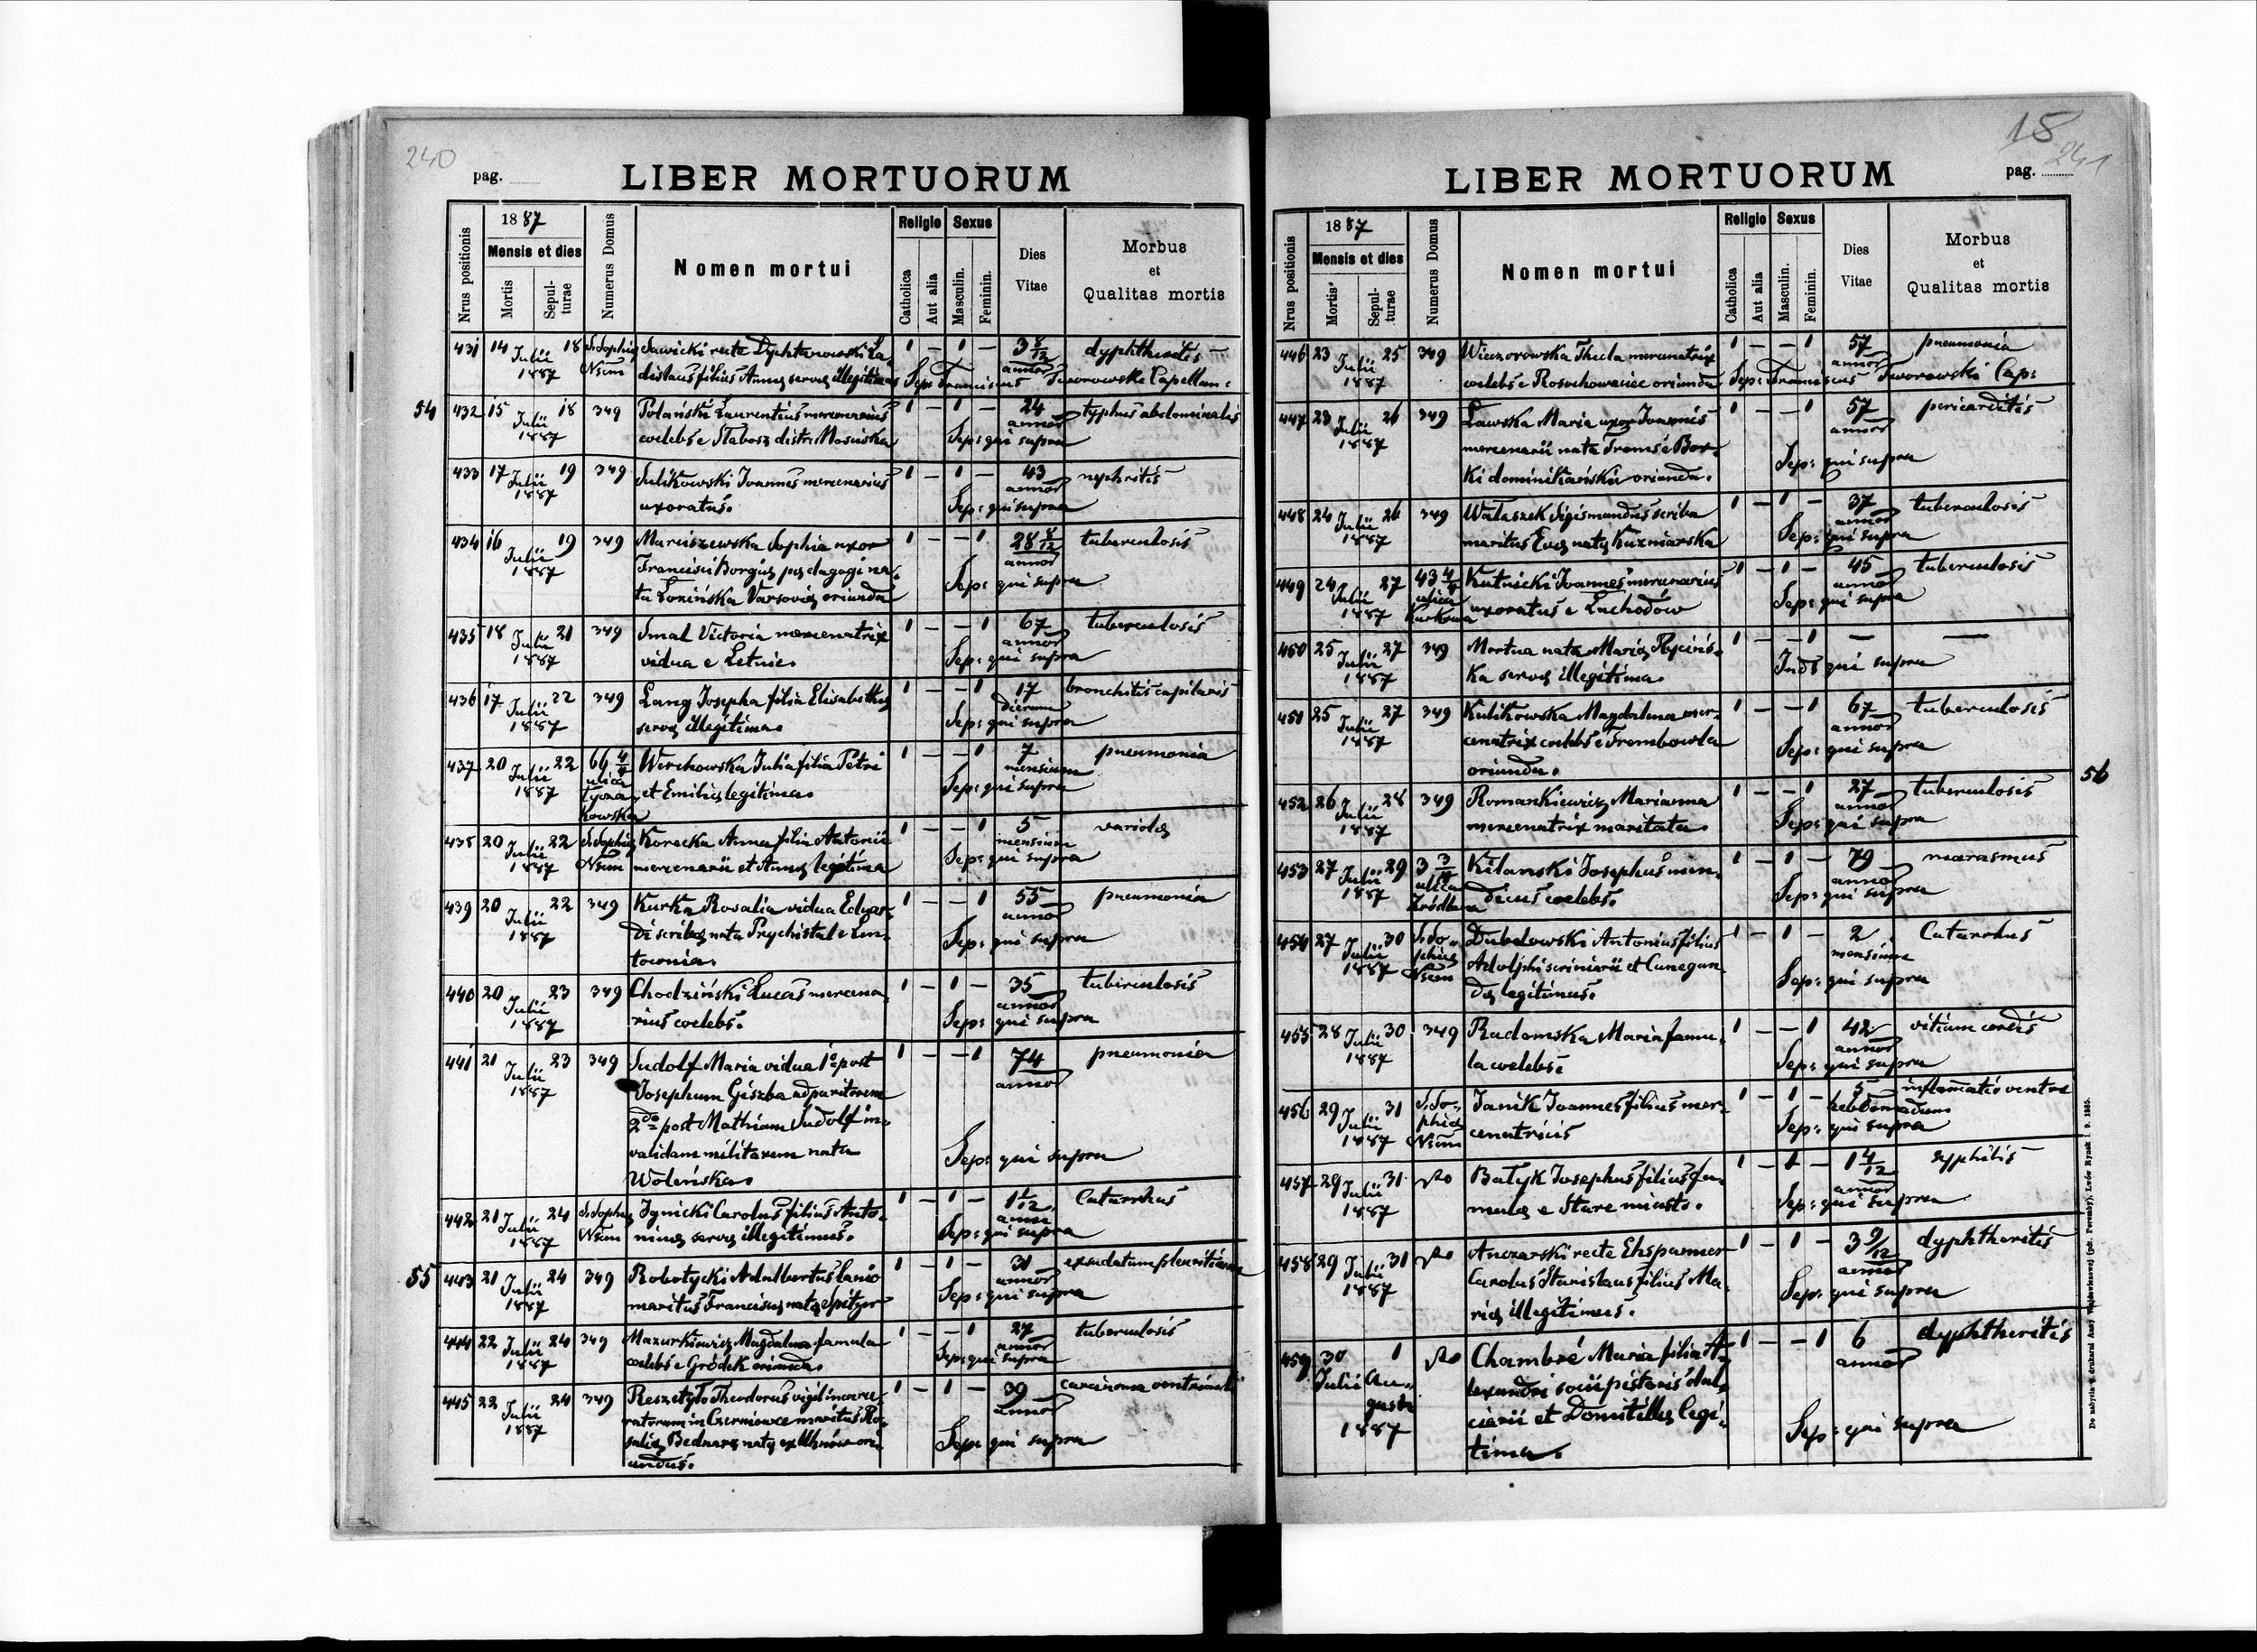 240
pag.
LIBER MORTUORUM
Nrus positionis
1887
Mensis et dies
Mortis
Sepulturae
Numerus Domus
Nomen mortui
Religio
Catholica
Aut alia
Sexus
Masculin.
Feminin.
Dies Vitae
Morbus
et
Qualitas mortis
431 14 Julii 18 S. Sophia Sawicki recte Dychtanowski La- 1 - 1 - 3 8/12 dyphtheritis
1887 Nrum dislaus filius Annæ servæ illegitimus Sep: Franciscus annor Tworowski Capellan:
54 432 15 Julii 18 349 Polański Laurentius mercenarius 1 - 1 - 24 typhus abdominalis
1887 coelebs e Stabosz distr: Mosciska annor Sep: qui supra
433 17 Julii 19 349 Sulikowski Joannes mercenarius 1 - 1 - 43 nephritis
1887 uxoratus. annor Sep: qui supra
434 16 Julii 19 349 Maruszewska Sophia uxor 1 - - 1 28 8/12 tuberculosis
1887 Francisci Borgiæ pædagogi na- annor
ta Łozińska Varsoviæ oriunda Sep: qui supra
435 18 Julii 21 349 Smal Victoria mercenatrix 1 - - 1 67 tuberculosis
1887 vidua e Letnie. annor Sep: qui supra
436 17 Julii 22 349 Lang Josepha filia Elisabethæ 1 - - 1 17 bronchitis capilaris
1887 servæ illegitima. dierum Sep: qui supra
437 20 Julii 22 66 4/4 Werchowska Julia filia Petri 1 - - 1 7 pneumonia
1887 ulica Łycza- et Emiliæ legitima. mensium Sep: qui supra
kowska
438 20 Julii 22 S. Sophiæ Korecka Anna filia Antonii 1 - - 1 5 variola
1887 Nrum mercenarii et Annæ legitima mensium Sep: qui supra
439 20 Julii 22 349 Kurka Rosalia vidua Eduar- 1 - - 1 55 pneumonia
1887 di scribæ nata Prychistal e annor
Sep: qui supra
440 20 Julii 23 349 Chodziński Lucas mercena- 1 - 1 - 35 tuberculosis
1887 rius coelebs. annor Sep: qui supra
441 21 Julii 23 349 Sudolf Maria vidua 1o post 1 - - 1 74 pneumonia
1887 Josephum Giszba adparitorem annor
2do post Mathiam Sudolf in-
validam militarem nata Sep: qui supra
Wolińska.
442 21 Julii 24 S. Sophiæ Carolus filius Anto- 1 - 1 - 1 1/12 Catarrhus
1887 Nrum ninæ servæ illegitimus. Sep: qui supra
55 443 21 Julii 24 349 Robotycki Adalbertus lanio 1 - 1 - 31 exsudatum pleuriticum
1887 maritus Franciscæ natæ Spitzer annor Sep: qui supra
444 22 Julii 24 349 Mazurkiewicz Magdalena famula 1 - - 1 27 tuberculosis
1887 coelebs e Gródek oriunda. annor Sep: qui supra
445 22 Julii 24 349 Reszetyło Theodorus vigil incarce- 1 - 1 - 39 carcinoma ventriculi
1887 ratorum in Czerniowce maritus Ro- annor
saliæ Bednarz natæ ex Uhnów ori- Sep: qui supra
undus.
15
241
pag.
LIBER MORTUORUM
Nrus positionis
1887
Mensis et dies
Mortis
Sepulturae
Numerus Domus
Nomen mortui
Religio
Catholica
Aut alia
Sexus
Masculin.
Feminin.
Dies Vitae
Morbus
et
Qualitas mortis
446 23 Julii 25 349 Wieczorowska Thecla mercenatrix 1 - - 1 57 pneumonia
1887 coelebs e Rosochowaciec oriunda Sep: Franciscus annor Tworowski Cap:
447 23 Julii 26 349 Ławska Maria uxor Joannis 1 - - 1 57 pericarditis
1887 mercenarii nata Froms e Bor- annor
ki dominikańskie oriunda. Sep: qui supra
448 24 Julii 26 349 Walaszek Sigismundus scriba 1 - 1 - 37 tuberculosis
1887 maritus Evæ natæ Kuzniarska annor Sep: qui supra
449 24 Julii 27 43 4/4 Kutnicki Joannes mercenarius 1 - 1 - 45 tuberculosis
1887 ulica Kurkowa uxoratus e Luchodów annor Sep: qui supra
450 25 Julii 27 349 Mortua nata Mariæ Rycińs- 1 - - 1 - -
1887 ka servæ illegitima. Inds qui supra
451 25 Julii 27 349 Kulikowska Magdalena mer- 1 - - 1 67 tuberculosis
1887 cenatrix coelebs e Trembowla annor Sep: qui supra
oriunda.
56
452 26 Julii 28 349 Romankiewicz Marianna 1 - - 1 27 tuberculosis
1887 mercenatrix maritata. annor Sep: qui supra
453 27 Julii 29 3 3/4 Kilanski Josephus men- 1 - 1 - 79 marasmus
1887 ulica Źródlana dicus coelebs. annor Sep: qui supra
454 27 Julii 30 S. So- Dubelowski Antonius filius 1 - 1 - 2 Catarrhus
1887 phiæ Nrum Adolphi scriniarii et Cunegun- mensium
dæ legitimus. Sep: qui supra
455 28 Julii 30 349 Radomska Maria famu- 1 - - 1 42 vitium cordis
1887 la coelebs. annor Sep: qui supra
456 29 Julii 31 S. So- Janik Joannes filius mer- 1 - 1 - 5 inflamatio ventre
1887 phiæ Nrum cenatricis hebdomadum Sep: qui supra
457 29 Julii 31 Batyk Josephus filius fa- 1 - 1 - 1 4/12 syphilis
1887 mulæ e Stare miasto. annor Sep: qui supra
458 29 Julii 31 Anczarski recte Ehspanner 1 - 1 - 3 9/12 dyphtheritis
1887 Carolus Stanislaus filius Ma- annor
riæ illegitimus. Sep: qui supra
459 30 1 Chambré Maria filia A- 1 - - 1 6 dyphtheritis
Julii Au- lexandri socii pistoris dul- annor
gusti ciarii et Domitillæ legi-
1887 tima. Sep: qui supra